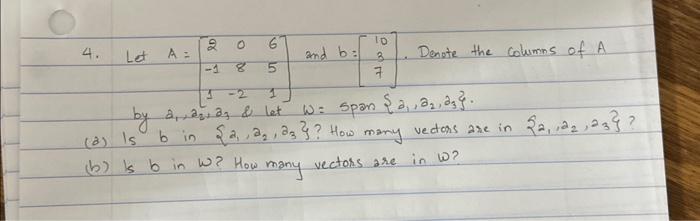 4. Let A = [2 0 6 and b = [10 . Denote the columns of A
-1 8 5 3
1 -2 1] 7]
by a₁, a₂, a₃ & let W = span {a₁, a₂, a₃}.
(a) Is b in {a₁, a₂, a₃}? How many vectors are in {a₁, a₂, a₃}?
(b) Is b in W? How many vectors are in W?